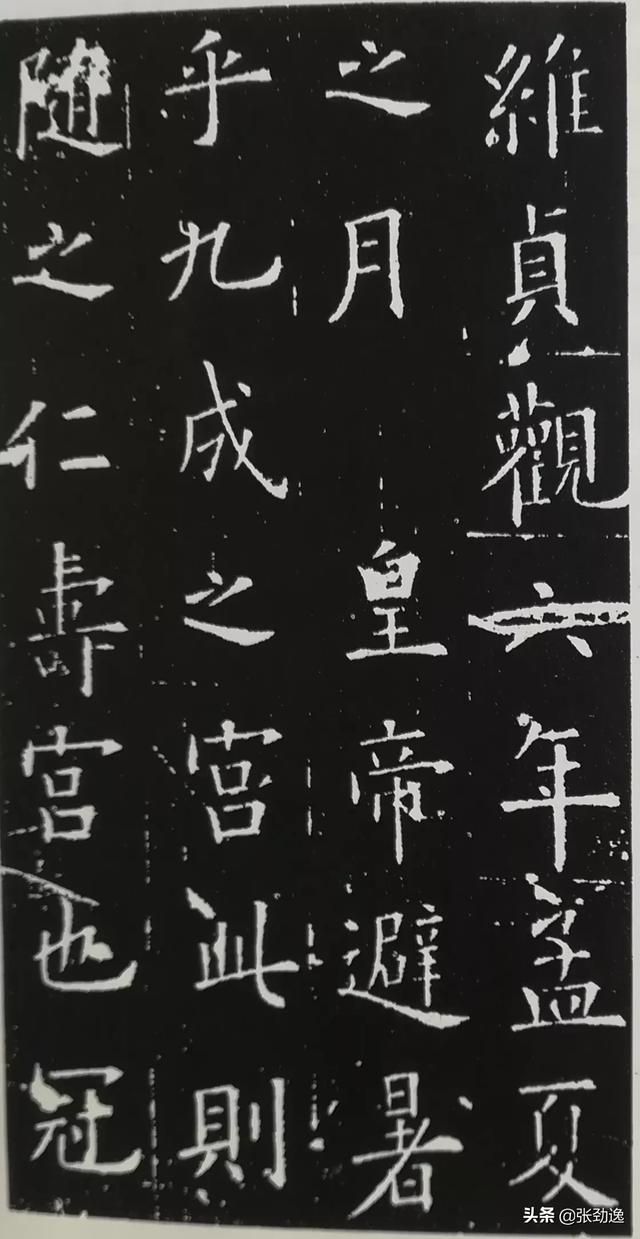 維貞觀六年孟夏
之月皇帝避暑
乎九成之宮此則
隨之仁壽宮也冠
头条 @张劲逸